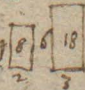 8 6 18
2 3